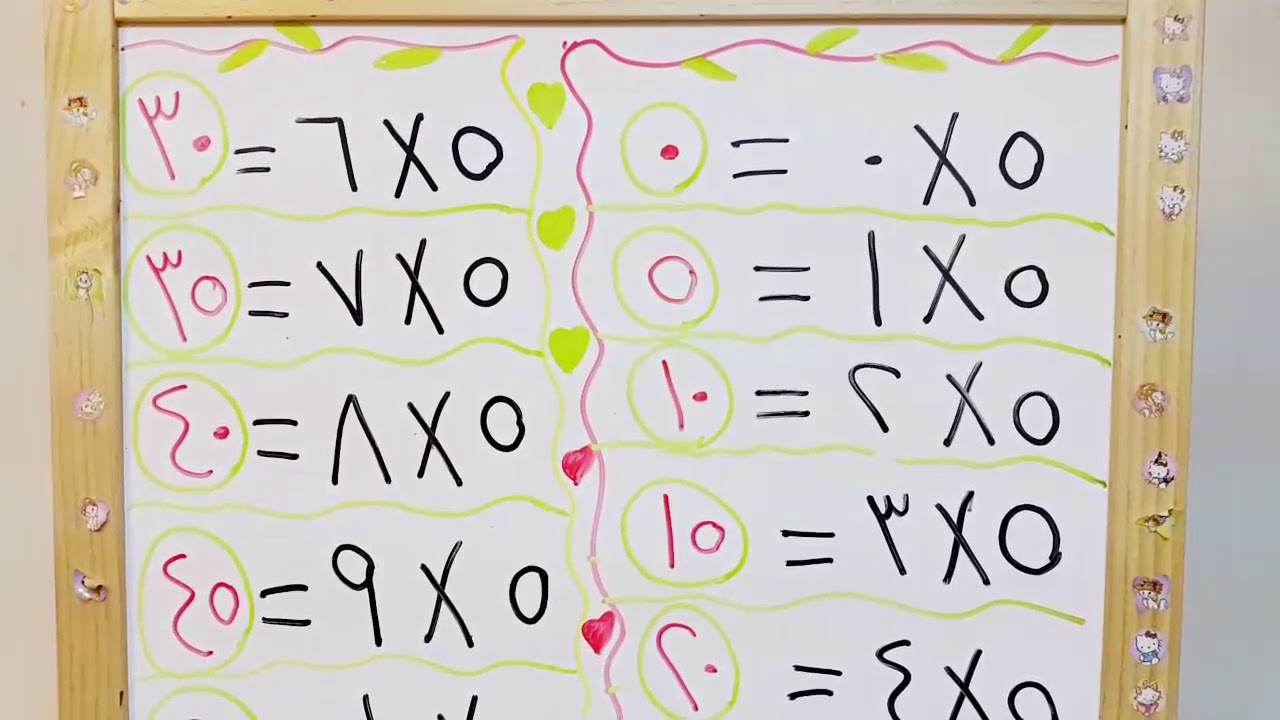 ٥ × ٠ = ٠
٥ × ١ = ٥
٥ × ٢ = ١٠
٥ × ٣ = ١٥
٥ × ٤ = ٢٠
٥ × ٦ = ٣٠
٥ × ٧ = ٣٥
٥ × ٨ = ٤٠
٥ × ٩ = ٤٥